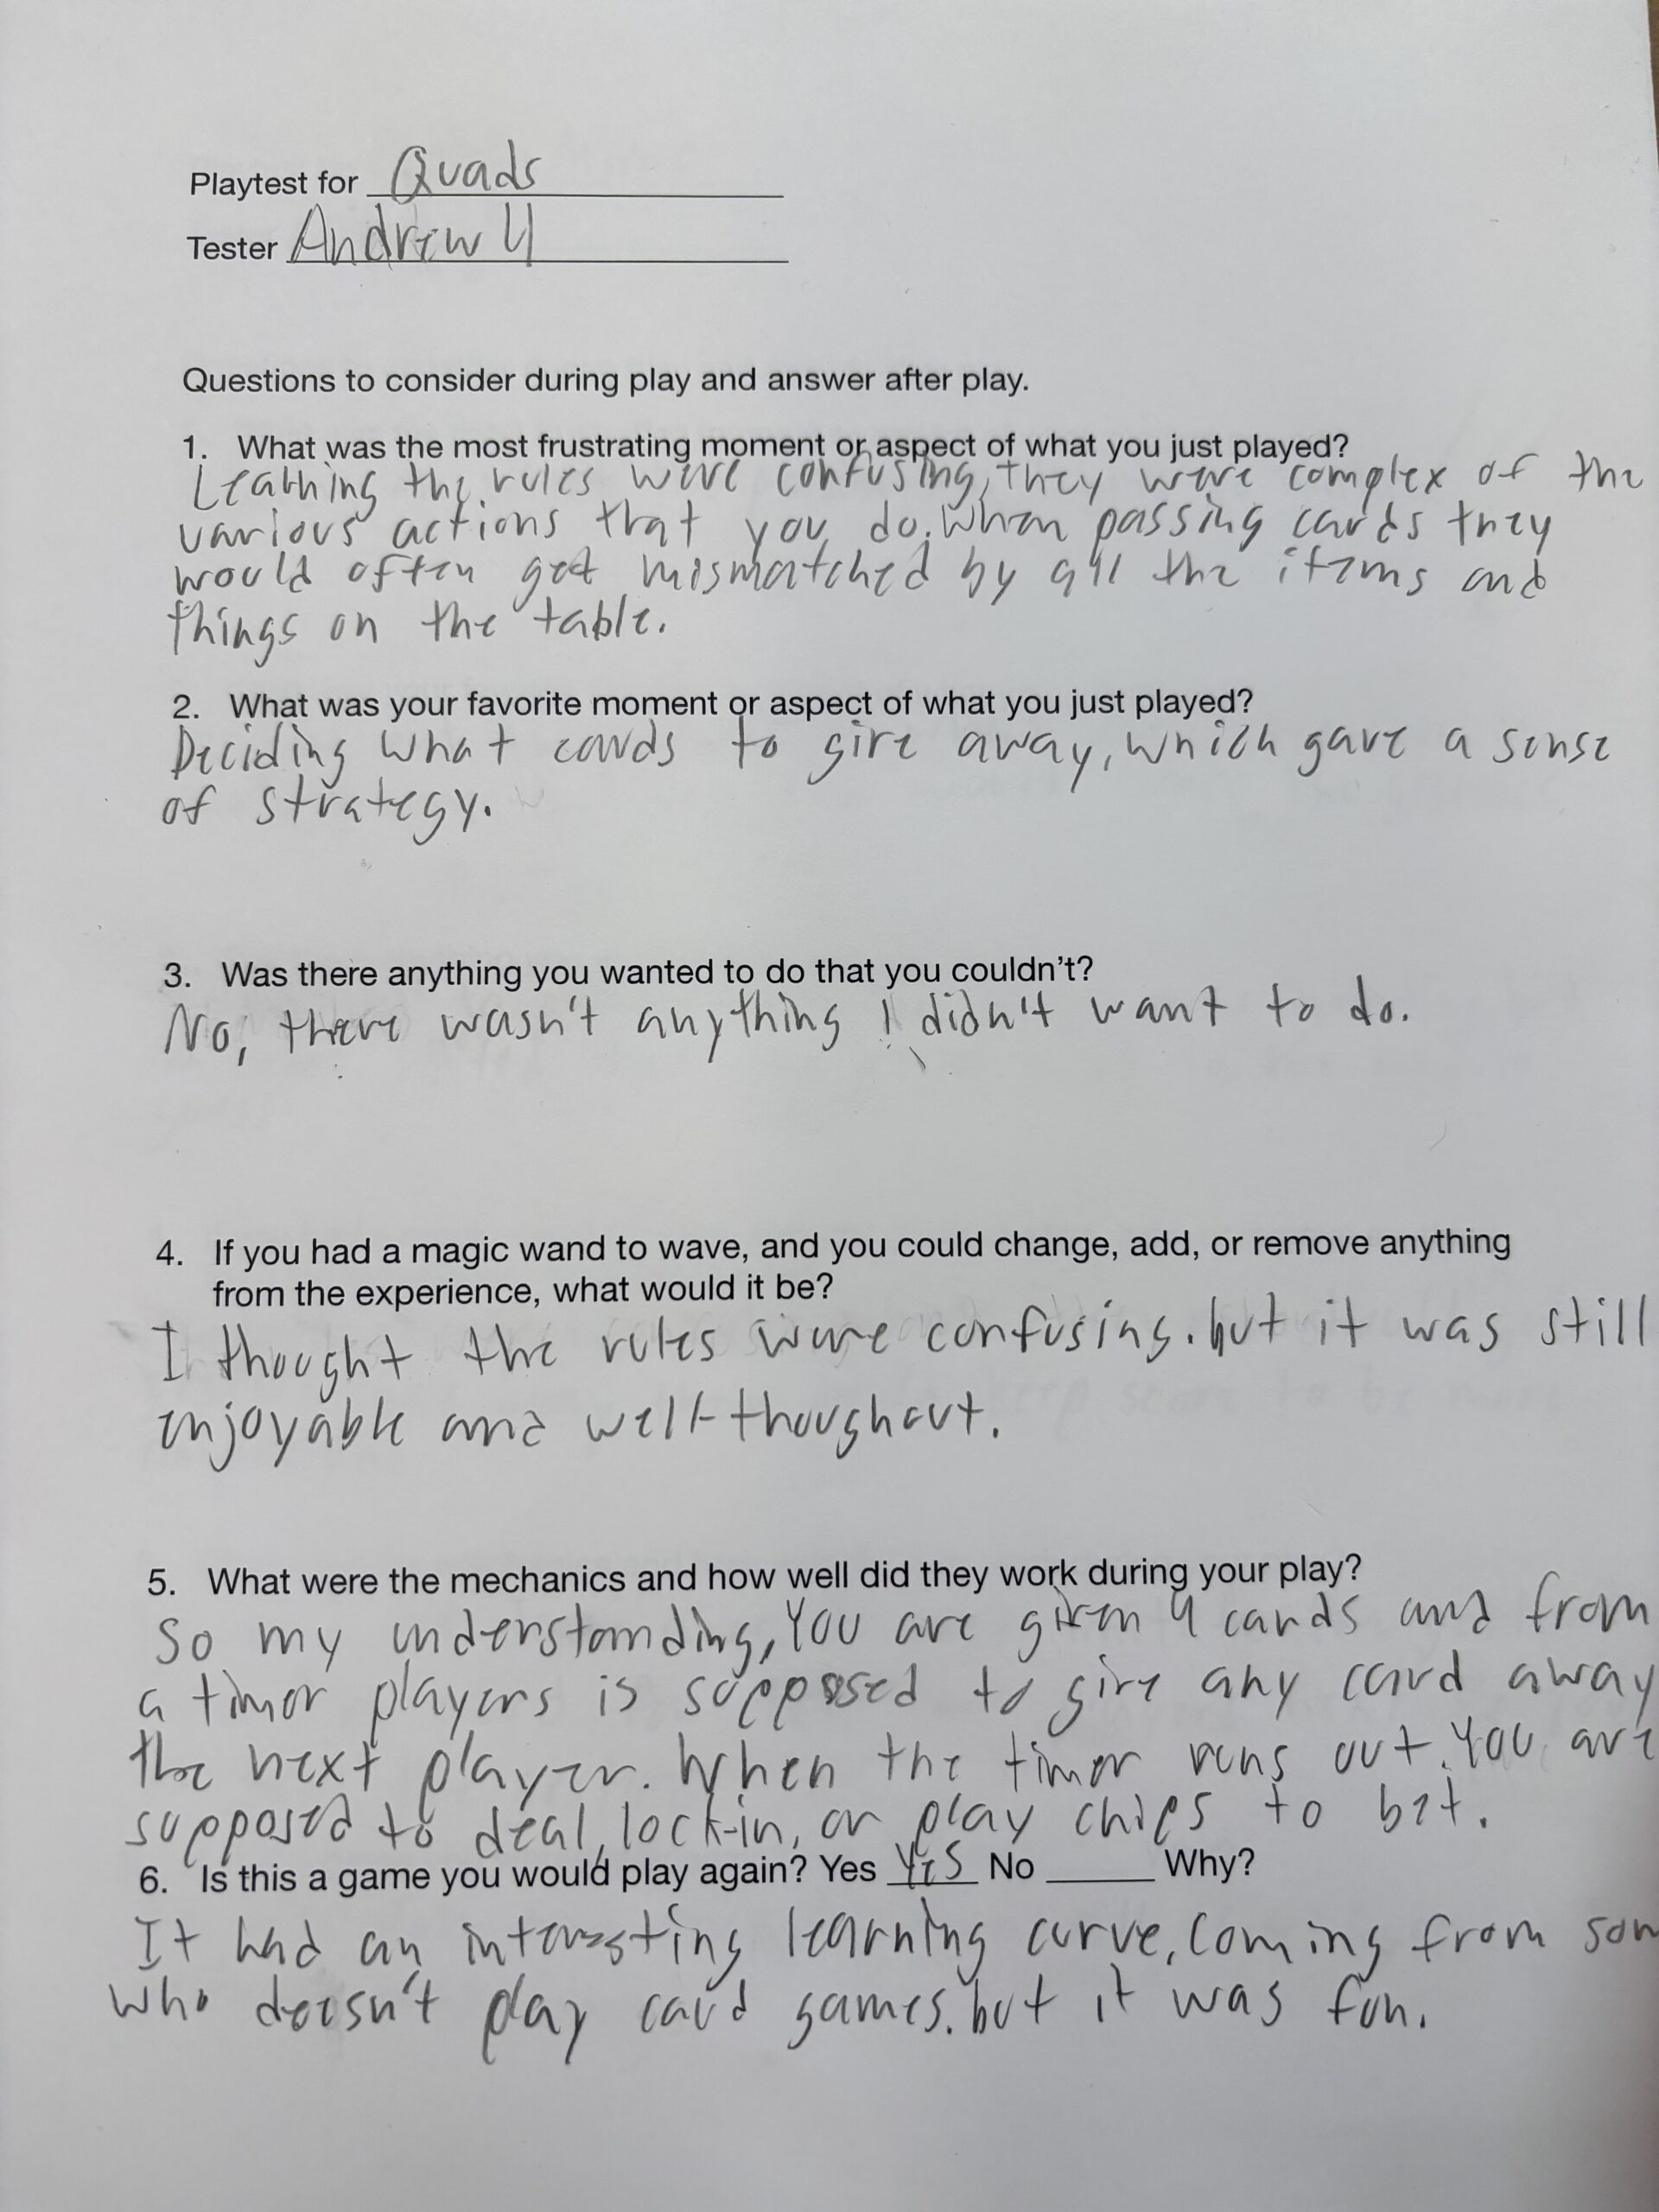 Playtest for Quads
Tester Andrew U
Questions to consider during play and answer after play.
1. What was the most frustrating moment or aspect of what you just played?
Learning the rules were confusing, they were complex of the
various actions that you do. When passing cards they
would often get mismatched by all the items and
things on the table.
2. What was your favorite moment or aspect of what you just played?
Deciding what cards to give away, which gave a sense
of strategy.
3. Was there anything you wanted to do that you couldn't?
No, there wasn't anything I didn't want to do.
4. If you had a magic wand to wave, and you could change, add, or remove anything
from the experience, what would it be?
I thought the rules were confusing. but it was still
enjoyable and well-thoughout.
5. What were the mechanics and how well did they work during your play?
So my understanding, You are given 4 cards and from
a timer players is supposed to give any card away
the next player. When the timer runs out. You are
supposed to deal, lock-in, or play chips to bet.
6. Is this a game you would play again? Yes Yes No ______ Why?
It had an interesting learning curve, coming from som
who doesn't play card games. but it was fun.